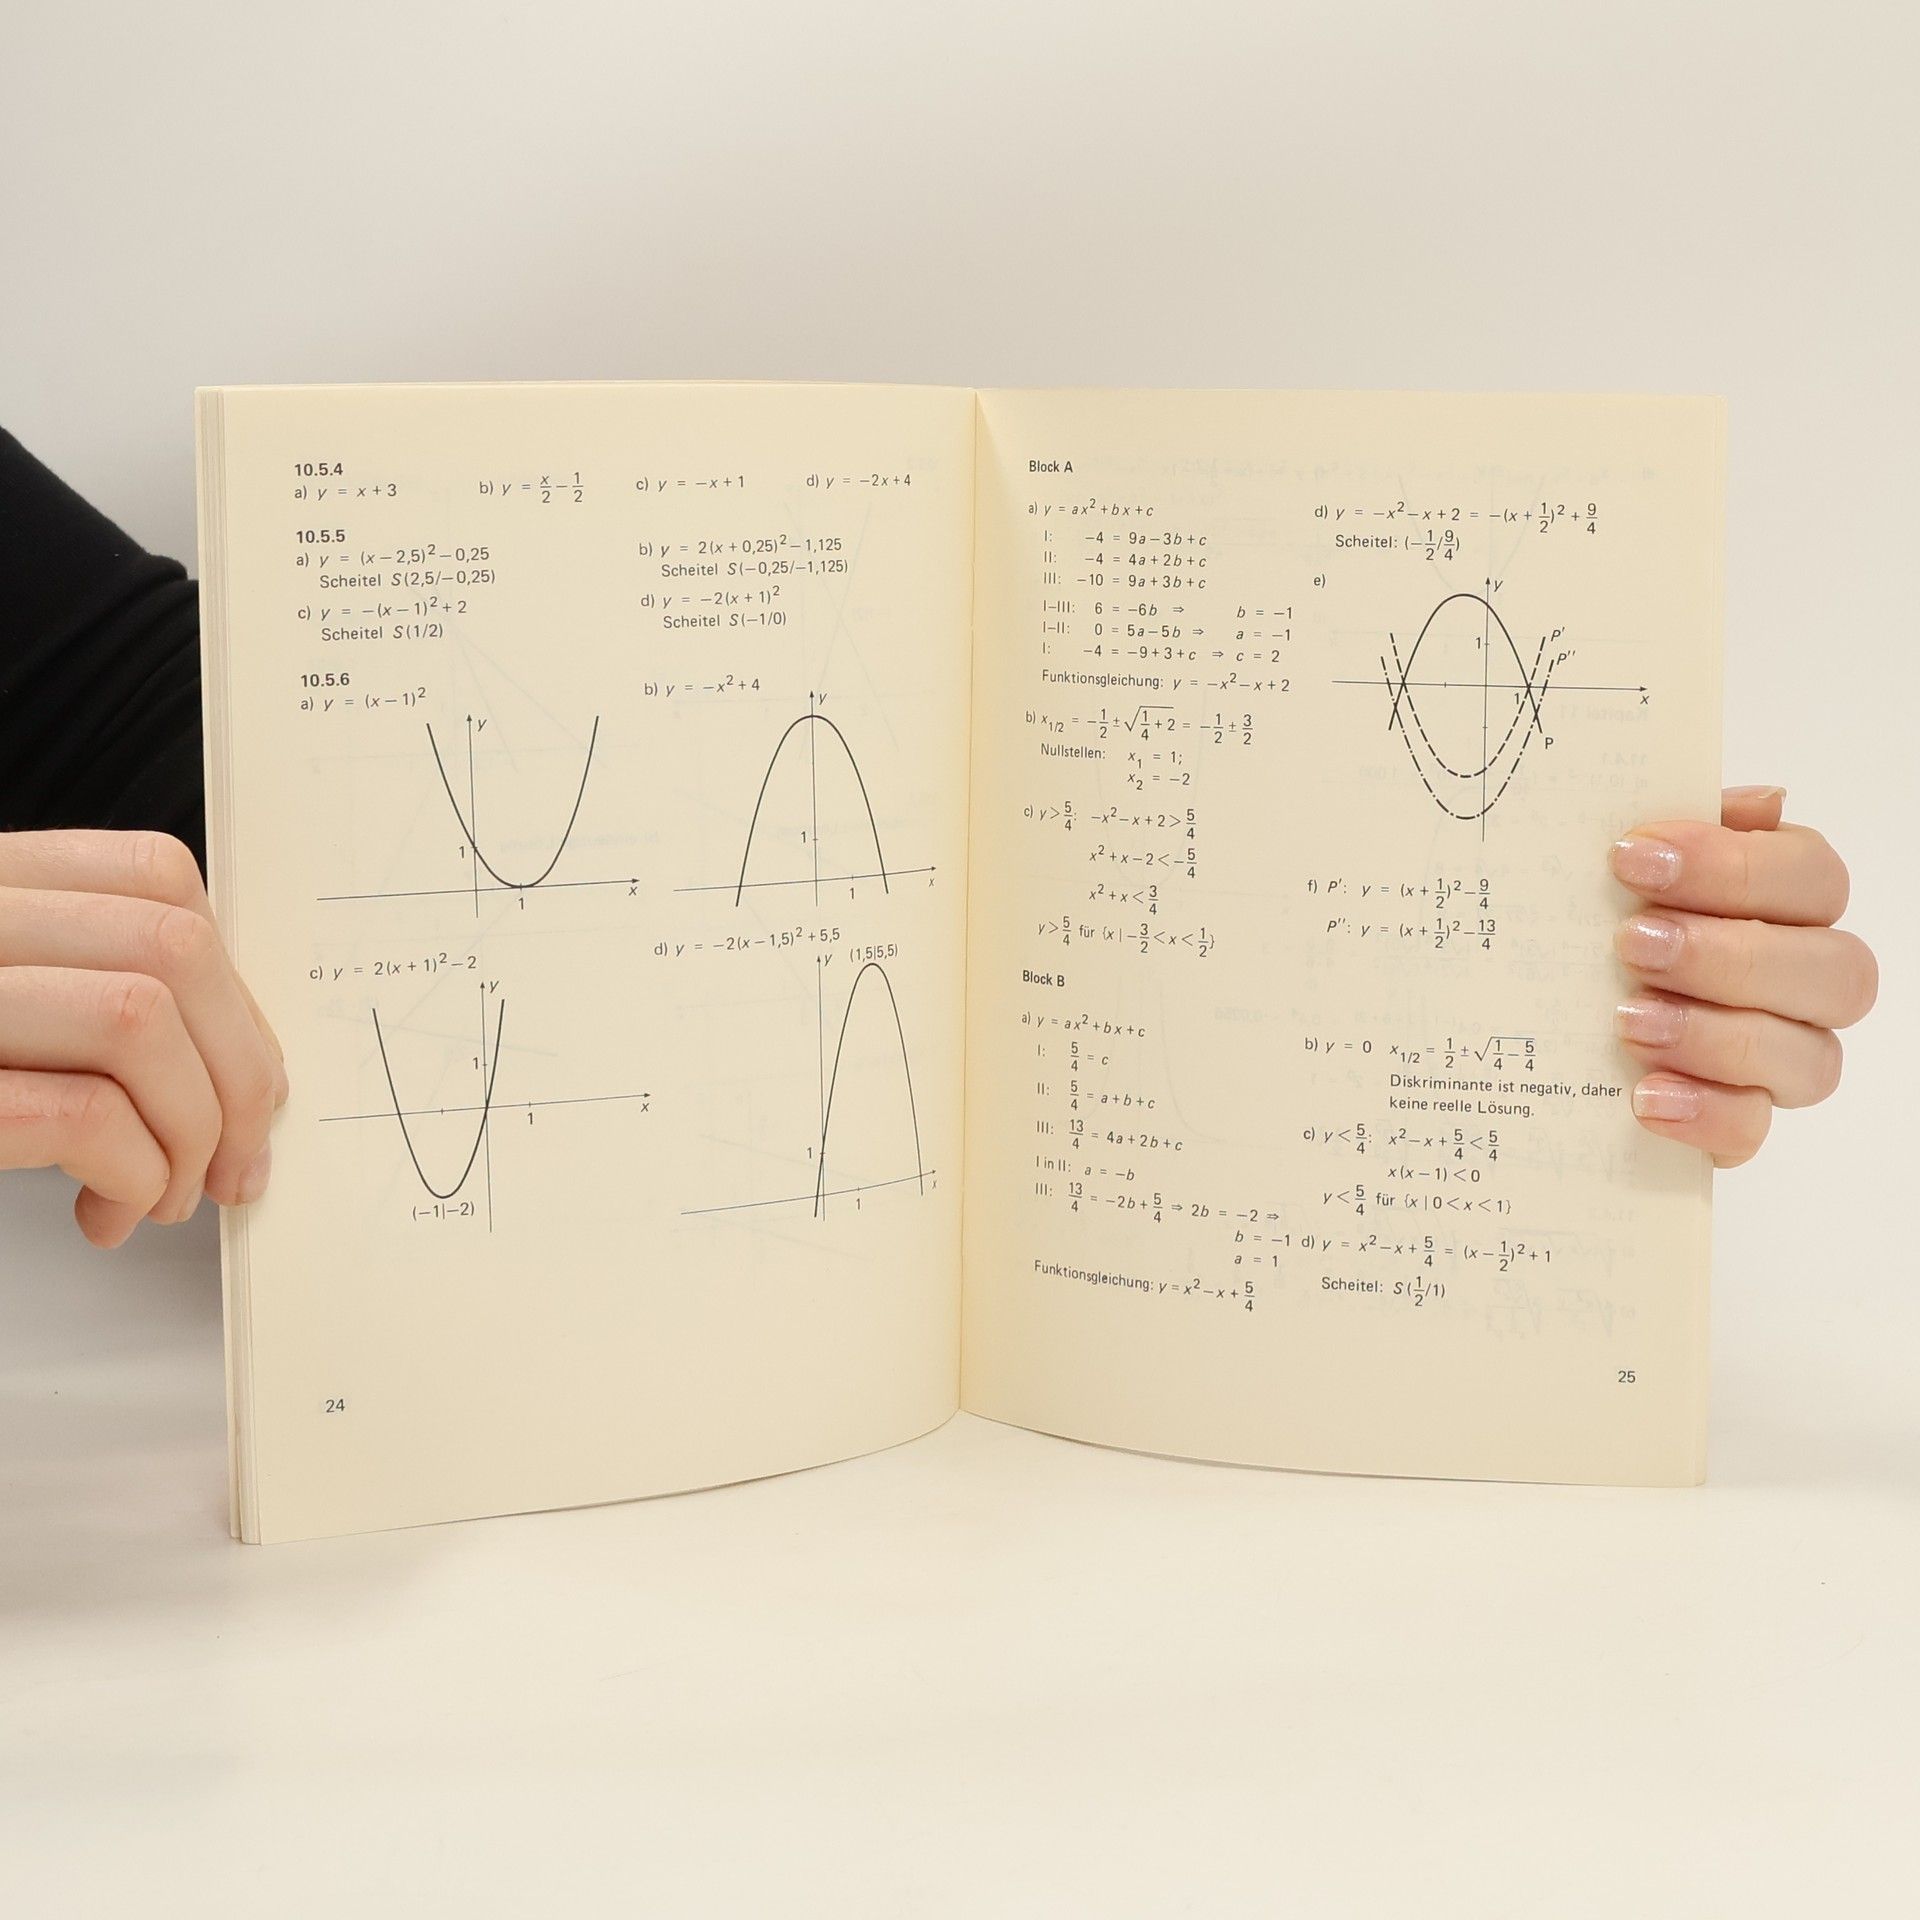 10.5.4
a) y = x + 3 b) y = x/2 − 1/2 c) y = −x + 1 d) y = −2x + 4
10.5.5
a) y = (x − 2,5)² − 0,25
Scheitel S(2,5/−0,25)
b) y = 2(x + 0,25)² − 1,125
Scheitel S(−0,25/−1,125)
c) y = −(x − 1)² + 2
Scheitel S(1/2)
d) y = −2(x + 1)²
Scheitel S(−1/0)
10.5.6
a) y = (x − 1)²
y
1
x
1
b) y = −x² + 4
y
1
x
1
c) y = 2(x + 1)² − 2
y
1
x
1
(−1|−2)
d) y = −2(x − 1,5)² + 5,5
y (1,5|5,5)
1
x
1
24
Block A
a) y = ax² + bx + c
I: −4 = 9a − 3b + c
II: −4 = 4a + 2b + c
III: −10 = 9a + 3b + c
I−III: 6 = −6b ⇒ b = −1
I−II: 0 = 5a − 5b ⇒ a = −1
I: −4 = −9 + 3 + c ⇒ c = 2
Funktionsgleichung: y = −x² − x + 2
b) x₁/₂ = −1/2 ± √(1/4 + 2) = −1/2 ± 3/2
Nullstellen: x₁ = 1;
x₂ = −2
c) y > 5/4: −x² − x + 2 > 5/4
x² + x − 2 < −5/4
x² + x < 3/4
y > 5/4 für {x | −3/2 < x < 1/2}
d) y = −x² − x + 2 = −(x + 1/2)² + 9/4
Scheitel: (−1/2/9/4)
e)
y
P'
1
P''
1
x
P
f) P': y = (x + 1/2)² − 9/4
P'': y = (x + 1/2)² − 13/4
Block B
a) y = ax² + bx + c
I: 5/4 = c
II: 5/4 = a + b + c
III: 13/4 = 4a + 2b + c
I in II: a = −b
III: 13/4 = −2b + 5/4 ⇒ 2b = −2 ⇒
b = −1
a = 1
Funktionsgleichung: y = x² − x + 5/4
b) y = 0 x₁/₂ = 1/2 ± √(1/4 − 5/4)
Diskriminante ist negativ, daher
keine reelle Lösung.
c) y < 5/4: x² − x + 5/4 < 5/4
x(x − 1) < 0
y < 5/4 für {x | 0 < x < 1}
d) y = x² − x + 5/4 = (x − 1/2)² + 1
Scheitel: S(1/2/1)
25